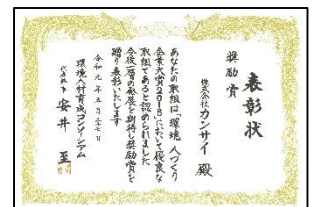 表彰状
奨励賞
株式会社カンサイ 殿
あなたの取組は「環境 人づくり
企業大賞2018」において優良な
取組であると認められました
今後一層の発展を期待し奨励賞を
贈り表彰いたします
令和元年五月二十七日
環境人材育成コンソーシアム
代表幹事 安井 至